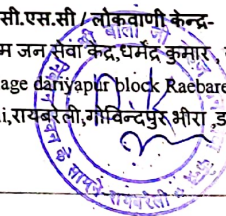 सी.एस.सी / लोकवाणी केन्द्र-
म जन सेवा केंद्र,धर्मेंद्र कुमार ,
age dariyapur block Raebare
i,रायबरेली,गोविन्दपुर भीरा ,ड
के सामने-रायबरेली